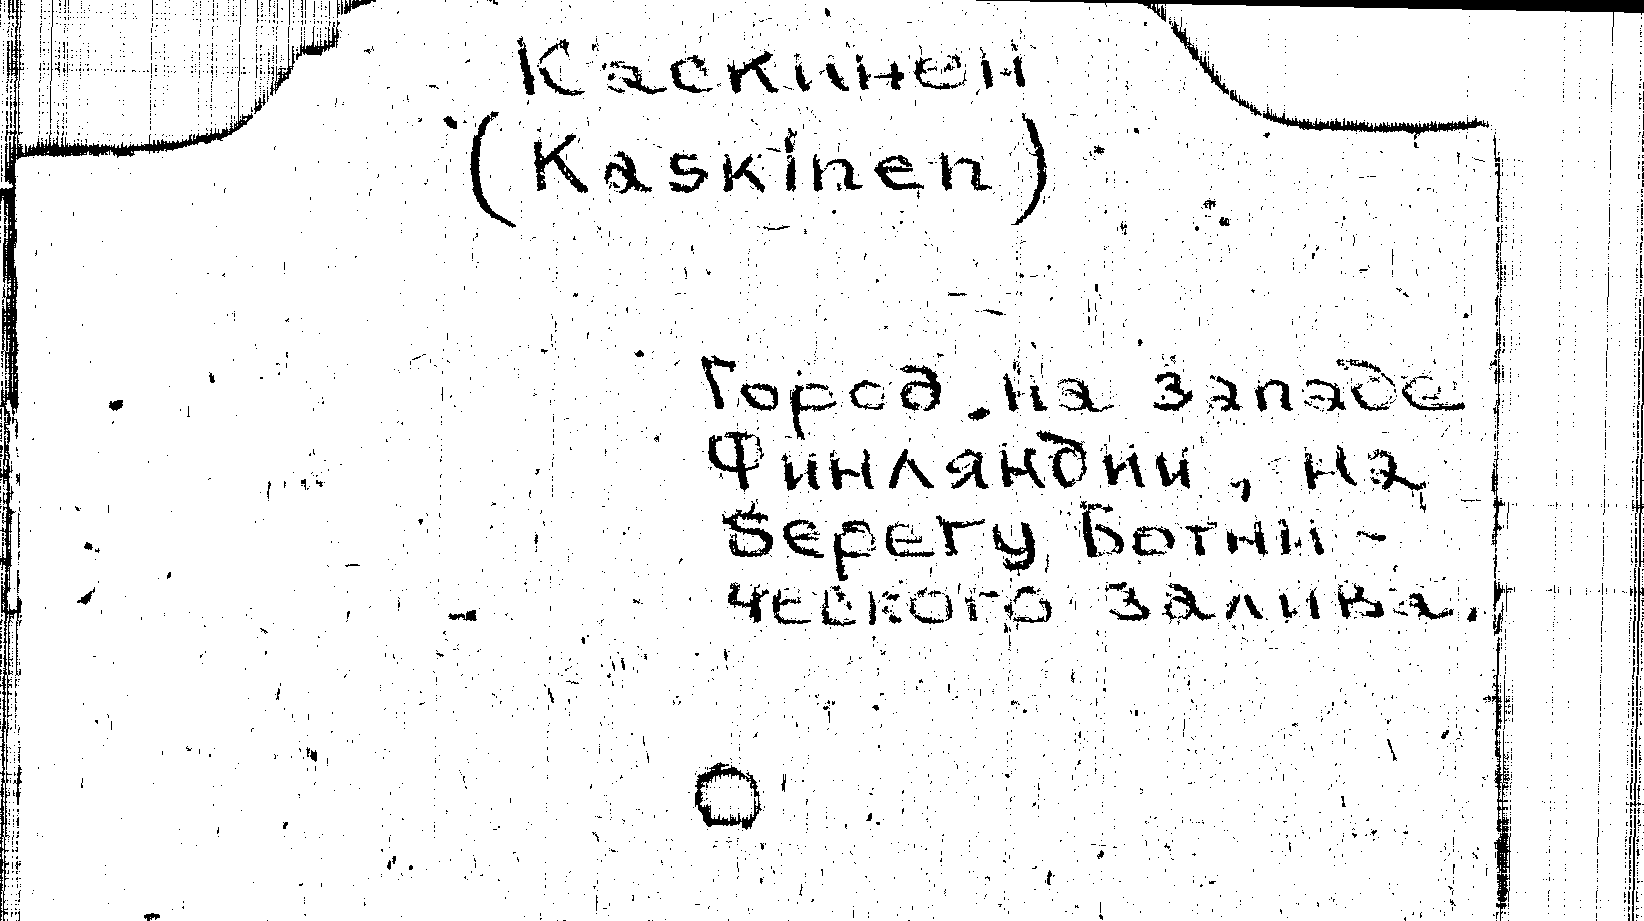 Каскинен
(Kaskinen)
Город на западе
Финляндии, на
берегу Ботни-
ческого залива.